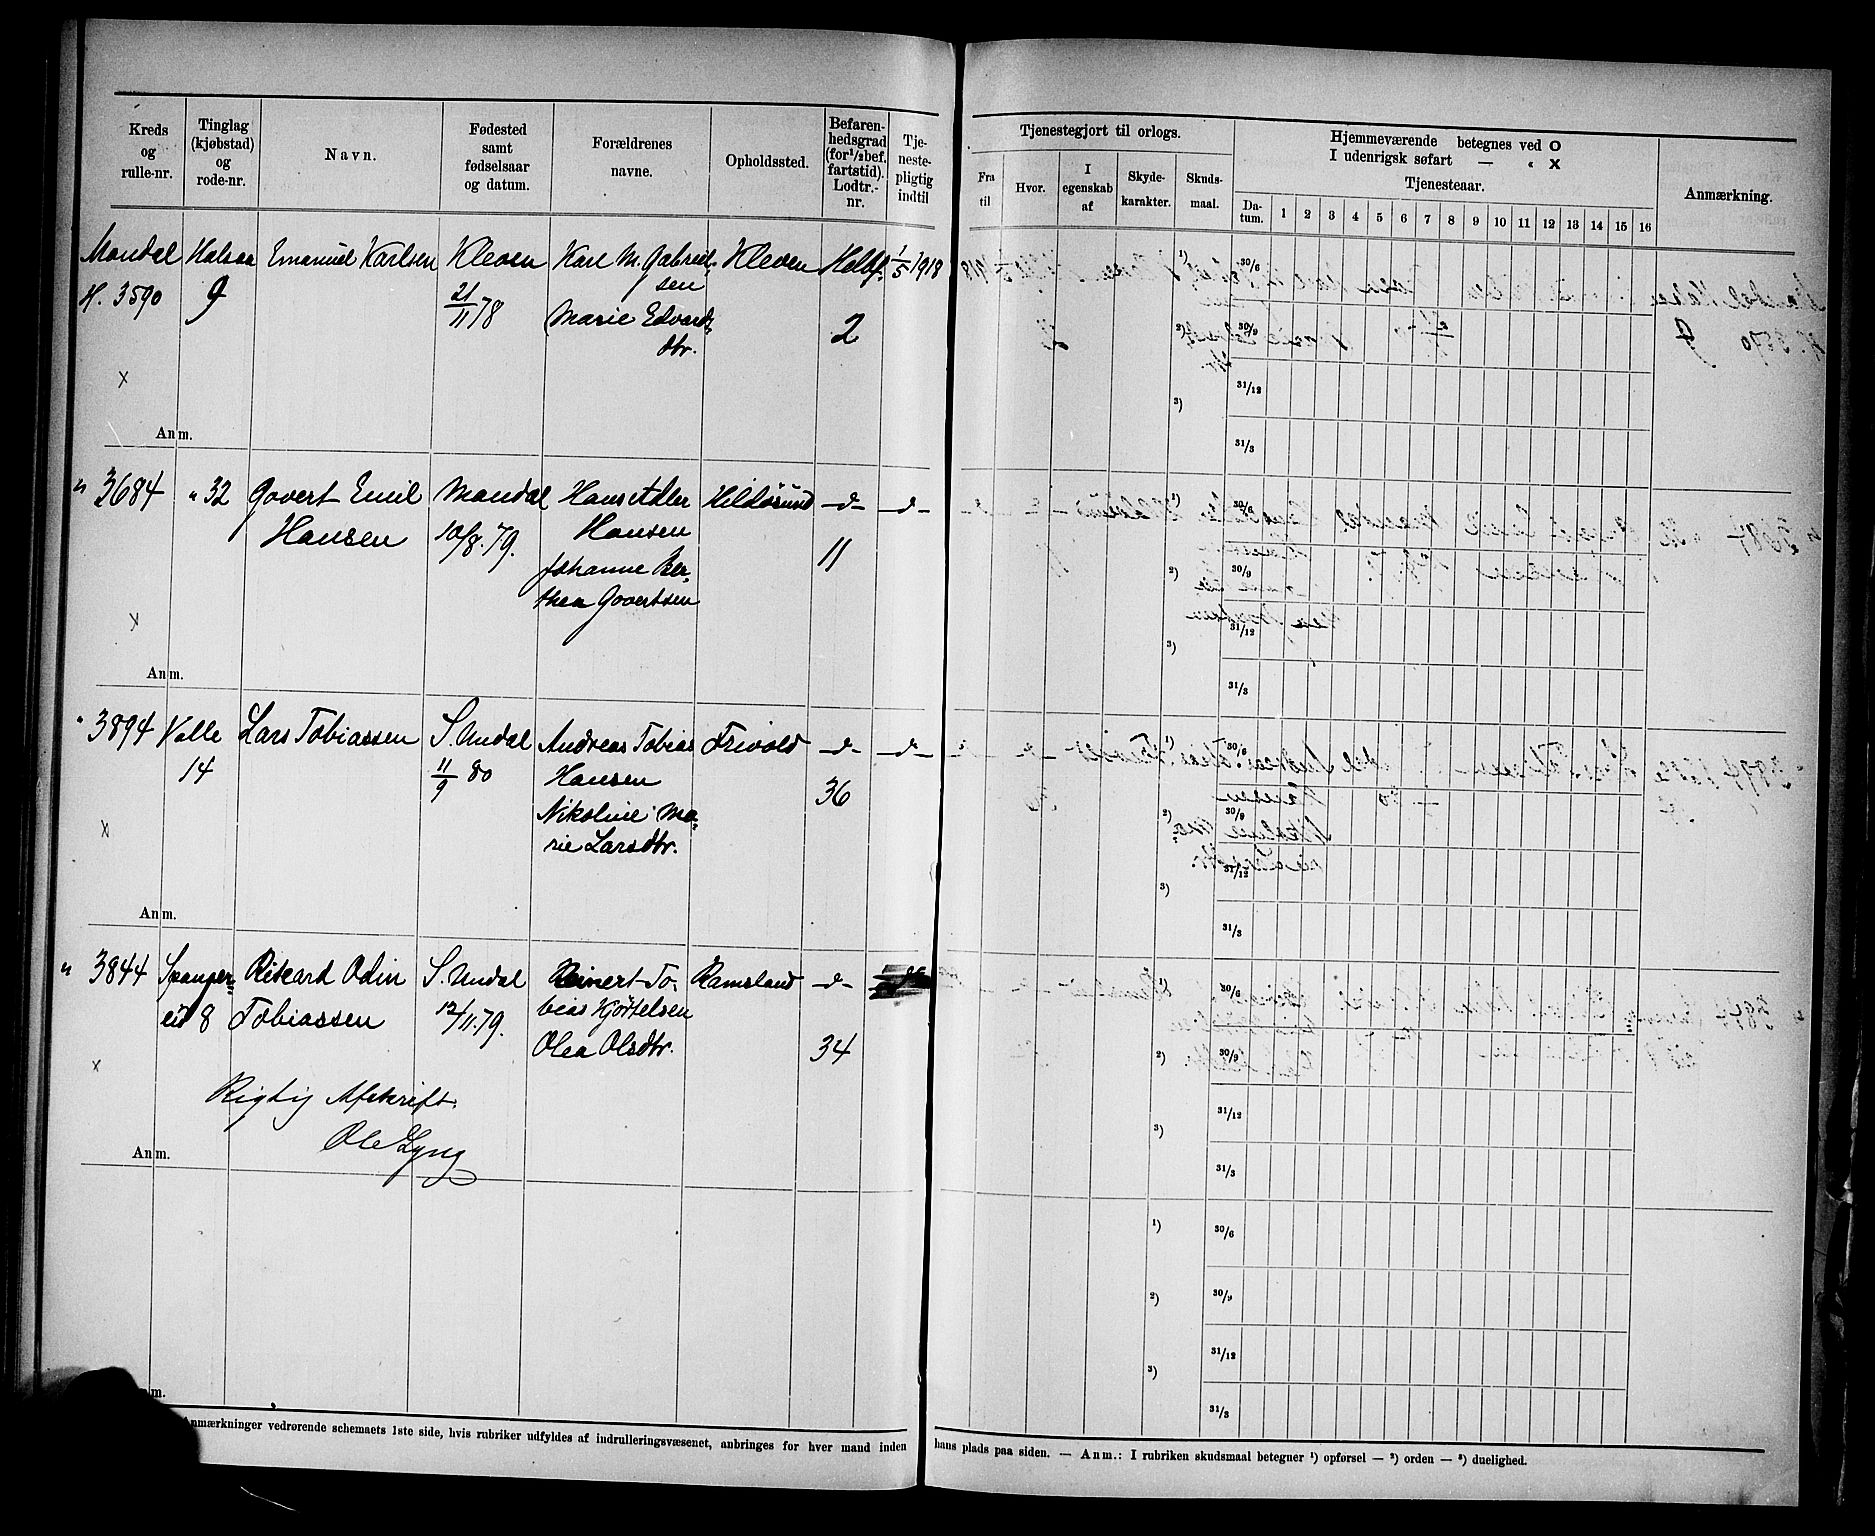 Kreds og rulle-nr.
Tinglag (kjøbstad) og rode-nr.
Navn.
Fødested samt fødselsaar og datum.
Forældrenes navne.
Opholdssted.
Befarenhedsgrad (for 1/2 bef. fartstid). Lodtr.-nr.
Tjenestepligtig indtil
Tjenestegjort til orlogs.
Fra til
Hvor.
I egenskab af
Skydekarakter.
Skudsmaal.
Hjemmeværende betegnes ved O
I udenrigsk søfart — " X
Tjenesteaar.
Datum. 1 2 3 4 5 6 7 8 9 10 11 12 13 14 15 16
Anmærkning.
Mandal Halsaa Emanuel Karlsen Kleven Karl M. Gabriel- Kleven Helbf. 1/5 1918
H. 3590 9 21/11 78 sen
Marie Edvards- 2
dtr.
x
Anm.
1) 30/6
2) 30/9
31/12
3)
31/3
" 3684 " 32 Govert Emil Mandal Hans Atler Hildøsund -"- -"-
Hansen 10/8.79. Hansen 11
Johanne Ber-
thea Govertsen
x
Anm.
1) 30/6
2) 30/9
31/12
3)
31/3
" 3894 Valle Lars Tobiassen S. Undal Andreas Tobias Frivold -"- -"-
14 11/9 80 Hansen 36
Nikoline Ma-
rie Larsdtr.
x
Anm.
1) 30/6
2) 30/9
31/12
3)
31/3
" 3844 Spanger- Rikard Odin S. Undal Reinert To- Ramsland -"-
eid 8 Tobiassen 12/11.79. bias Kjørtelsen
Olea Olsdtr. 34
x
Rigtig Afskrift.
Ole Lyng
Anm.
1) 30/6
2) 30/9
31/12
3)
31/3
1) 30/6
2) 30/9
31/12
3)
31/3
nm.
Anmærkninger vedrørende schemaets 1ste side, hvis rubriker udfyldes af indrulleringsvæsenet, anbringes for hver mand inden hans plads paa siden. — Anm.: I rubriken skudsmaal betegner ¹) opførsel — ²) orden — ³) duelighed.